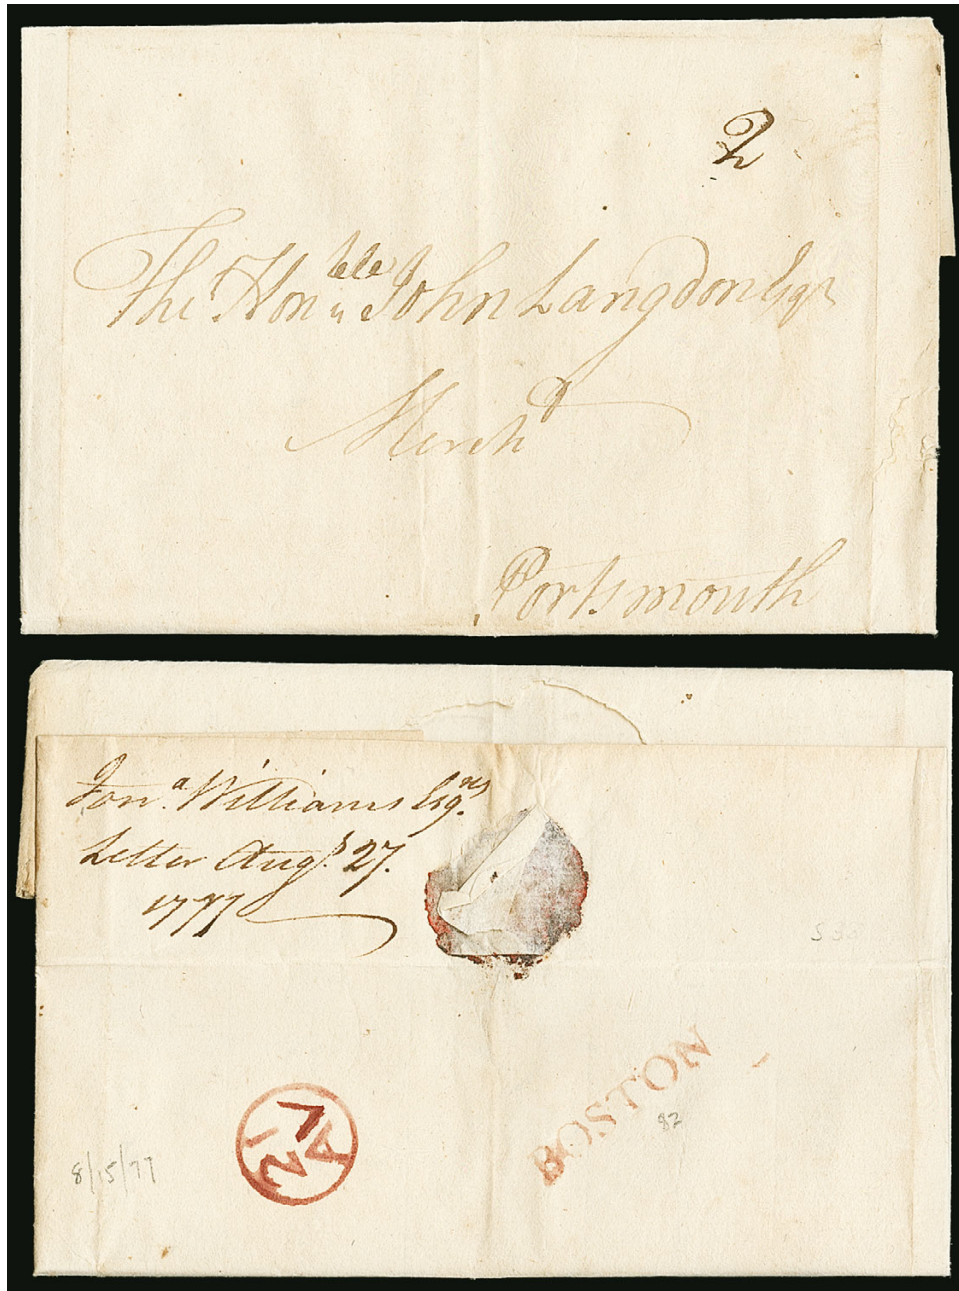 2
The Honble John Langdon Esqr
Mercht
Portsmouth
Jona. Williams Esq.
Letter Augt. 27.
1777
S 33
BOSTON
82
8/15/77
21
AV